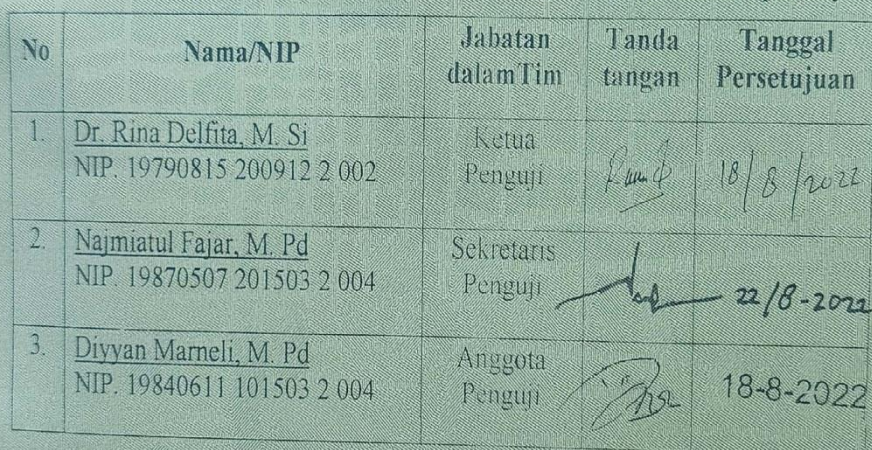 No Nama/NIP Jabatan dalam Tim Tanda tangan Tanggal Persetujuan
1. Dr. Rina Delfita, M. Si
NIP. 19790815 200912 2 002
Ketua
Penguji
18/8/2022
2. Najmiatul Fajar, M. Pd
NIP. 19870507 201503 2 004
Sekretaris
Penguji
22/8-2022
3. Diyyan Marneli, M. Pd
NIP. 19840611 101503 2 004
Anggota
Penguji
18-8-2022